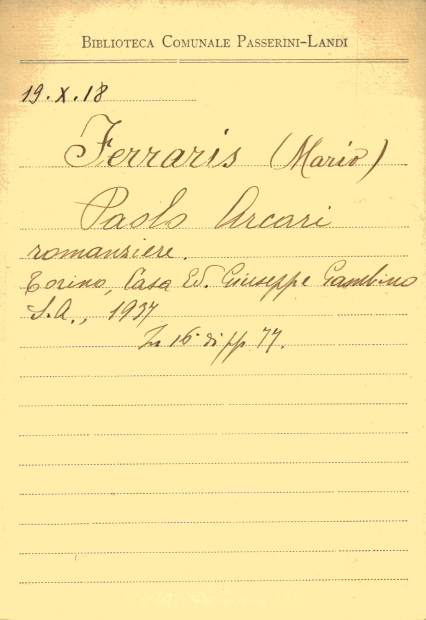 BIBLIOTECA COMUNALE PASSERINI-LANDI
19.X.18
Ferraris (Mario)
Paolo Arcari
romanziere.
Torino, Casa Ed. Giuseppe Gambino
S.A., 1937
In 16° di pp 77.